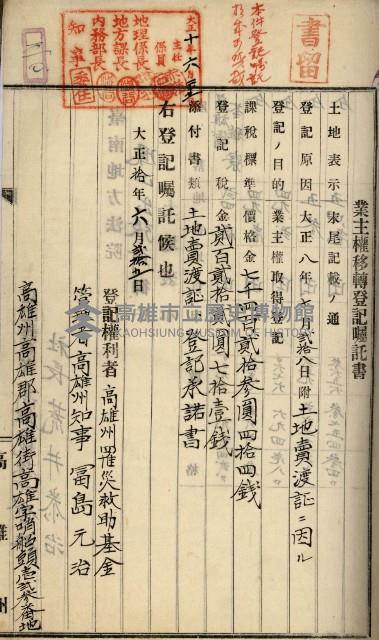 書留
業主權移轉登記囑託書
土地表示 末尾記載ノ通
登記原因 大正八年七月貳拾八日附土地賣渡証ニ因ル
登記ノ目的 業主權取得登記
課税標準價格金七千四百貳拾參圓四拾四錢
登記税金貳百貳拾
圓七拾壹錢
添付書類 土地賣渡証 登記承諾書
右登記囑託候也
大正拾年六月貳拾五日
登記權利者 高雄州罹災救助基金
管理者高雄州知事 冨島元治
高雄州高雄郡高雄街高雄字哨船頭壱貳參番地
高雄州
知事
內務部長
地方課長
地理係長
主任
係員
委任
高雄市立歷史博物館
KAOHSIUNG MUSEUM OF HISTORY
臺南地方法院
社長 荒井泰治